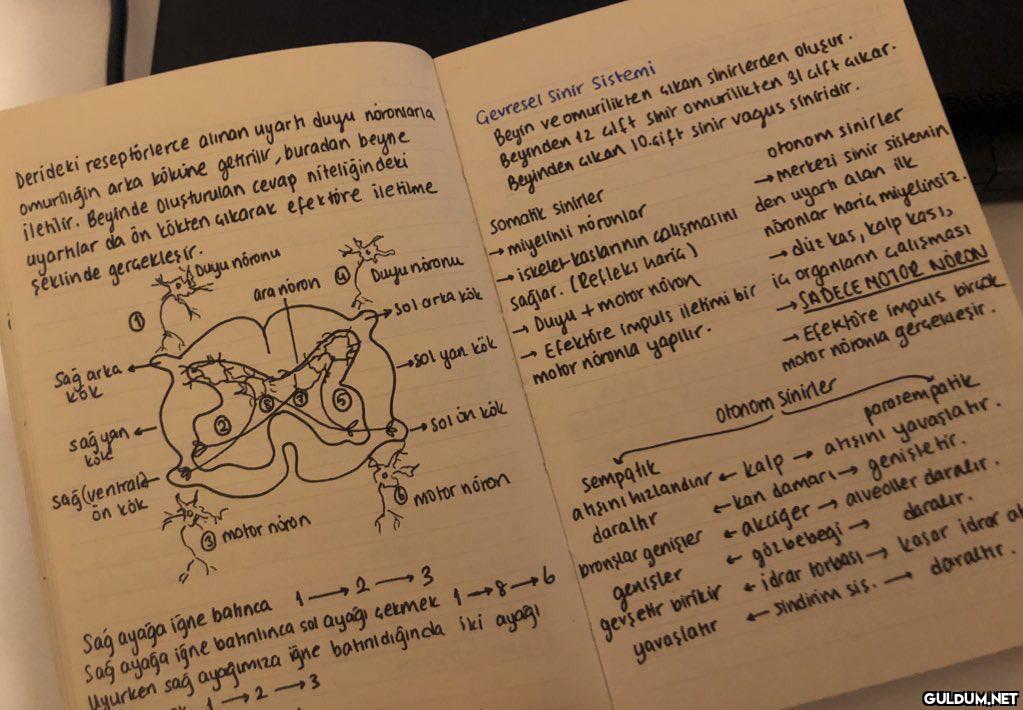 Derideki reseptörlerce alınan uyartı duyu nöronlarla
omuriliğin arka köküne getirilir, buradan beyne
iletilir. Beyinde oluşturulan cevap niteliğindeki
uyartılar da ön kökten çıkarak efektöre iletilme
şeklinde gerçekleşir.
Duyu nöronu
ara nöron
Duyu nöronu
1
4
sol arka kök
Sağ arka
kök
sol yan kök
2
8
7
5
sağ yan
kök
sol ön kök
sağ (ventral)
ön kök
3 motor nöron
6 motor nöron
Sağ ayağa iğne batınca 1 → 2 → 3
Sağ ayağa iğne batırılınca sol ayağı çekmek 1 → 8 → 6
Uyurken sağ ayağımıza iğne batırıldığında iki ayağı
1 → 2 → 3
Çevresel Sinir Sistemi
Beyin ve omurilikten çıkan sinirlerden oluşur.
Beyinden 12 çift sinir omurilikten 31 çift çıkar.
Beyinden çıkan 10.çift sinir vagus siniridir.
somatik sinirler
→ miyelinli nöronlar
→ iskelet kaslarının çalışmasını
sağlar. (Refleks hariç)
→ Duyu + motor nöron
→ Efektöre impuls iletimi bir
motor nöronla yapılır.
otonom sinirler
→ merkezi sinir sistemin
den uyartı alan ilk
nöronlar hariç miyelinsiz.
→ düz kas, kalp kası,
iç organların çalışması
→ SADECE MOTOR NÖRON
→ Efektöre impuls birçok
motor nöronla gerçekleşir.
otonom sinirler
sempatik
parasempatik
atışını hızlandırır ← kalp → atışını yavaşlatır.
daraltır ← kan damarı → genişletir.
bronşlar genişler ← akciğer → alveoller daralır.
genişler ← gözbebeği → daralır.
gevşetir birikir ← idrar torbası → kasar idrar
yavaşlatır ← sindirim sis. → daraltır.
GULDUM.NET